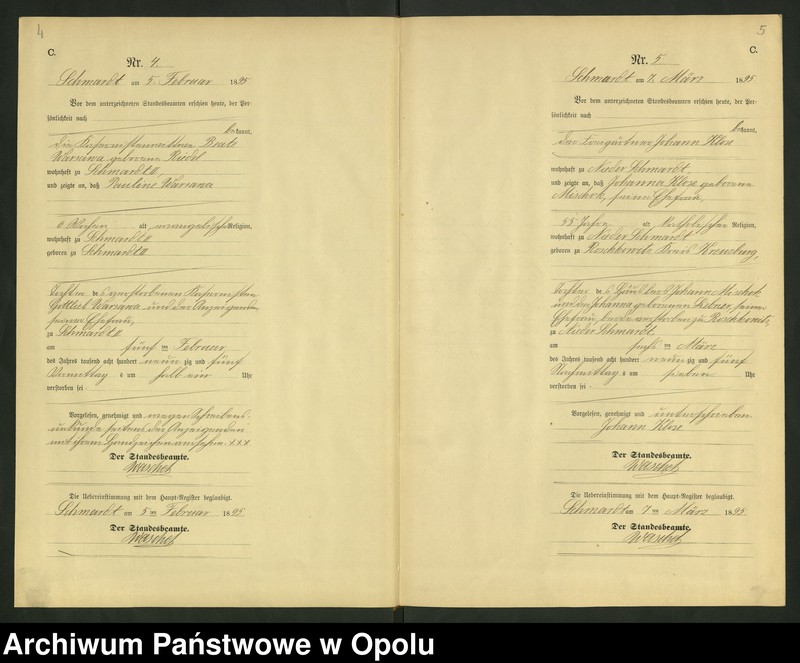 4
C.
Nr. 4.
Schmardt am 5 Februar 1895
Vor dem unterzeichneten Standesbeamten erschien heute, der Per-
sönlichkeit nach
bekannt,
die Beate
Warsawa geborene Riedel
wohnhaft zu Schmardt II,
und zeigte an, daß Pauline Warsawa
6 Wochen alt evangelischer Religion,
wohnhaft zu Schmardt II
geboren zu Schmardt II
Tochter des verstorbenen
Gottlieb Warsawa und der Anzeigenden
seiner Ehefrau,
zu Schmardt II
am fünften Februar
des Jahres tausend acht hundert neunzig und fünf
Vormittag s um halb ein Uhr
verstorben sei
Vorgelesen, genehmigt und wegen Schreibens-
unkunde seitens der Anzeigenden
mit ihrem Handzeichen versehen. xxx
Der Standesbeamte.
Waschek
Die Uebereinstimmung mit dem Haupt-Register beglaubigt.
Schmardt am 5ten Februar 1895
Der Standesbeamte.
Waschek
5
C.
Nr. 5
Schmardt am 7. März 1895
Vor dem unterzeichneten Standesbeamten erschien heute, der Per-
sönlichkeit nach
bekannt,
der Johann Klose
wohnhaft zu Nieder Schmardt,
und zeigte an, daß Johanna Klose geborene
Mischok, seine Ehefrau,
55 Jahre alt katholischer Religion,
wohnhaft zu Nieder Schmardt
geboren zu Roschkowitz Kreis Kreuzburg,
Tochter des Häuslers Johann Mischok
und der Johanna geborenen seiner
Ehefrau, beide verstorben zu Roschkowitz,
zu Nieder Schmardt
am sechsten März
des Jahres tausend acht hundert neunzig und fünf
Nachmittag s um sieben Uhr
verstorben sei
Vorgelesen, genehmigt und unterschrieben
Johann Klose
Der Standesbeamte.
Waschek
Die Uebereinstimmung mit dem Haupt-Register beglaubigt.
Schmardt am 7ten März 1895
Der Standesbeamte.
Waschek
Archiwum Państwowe w Opolu